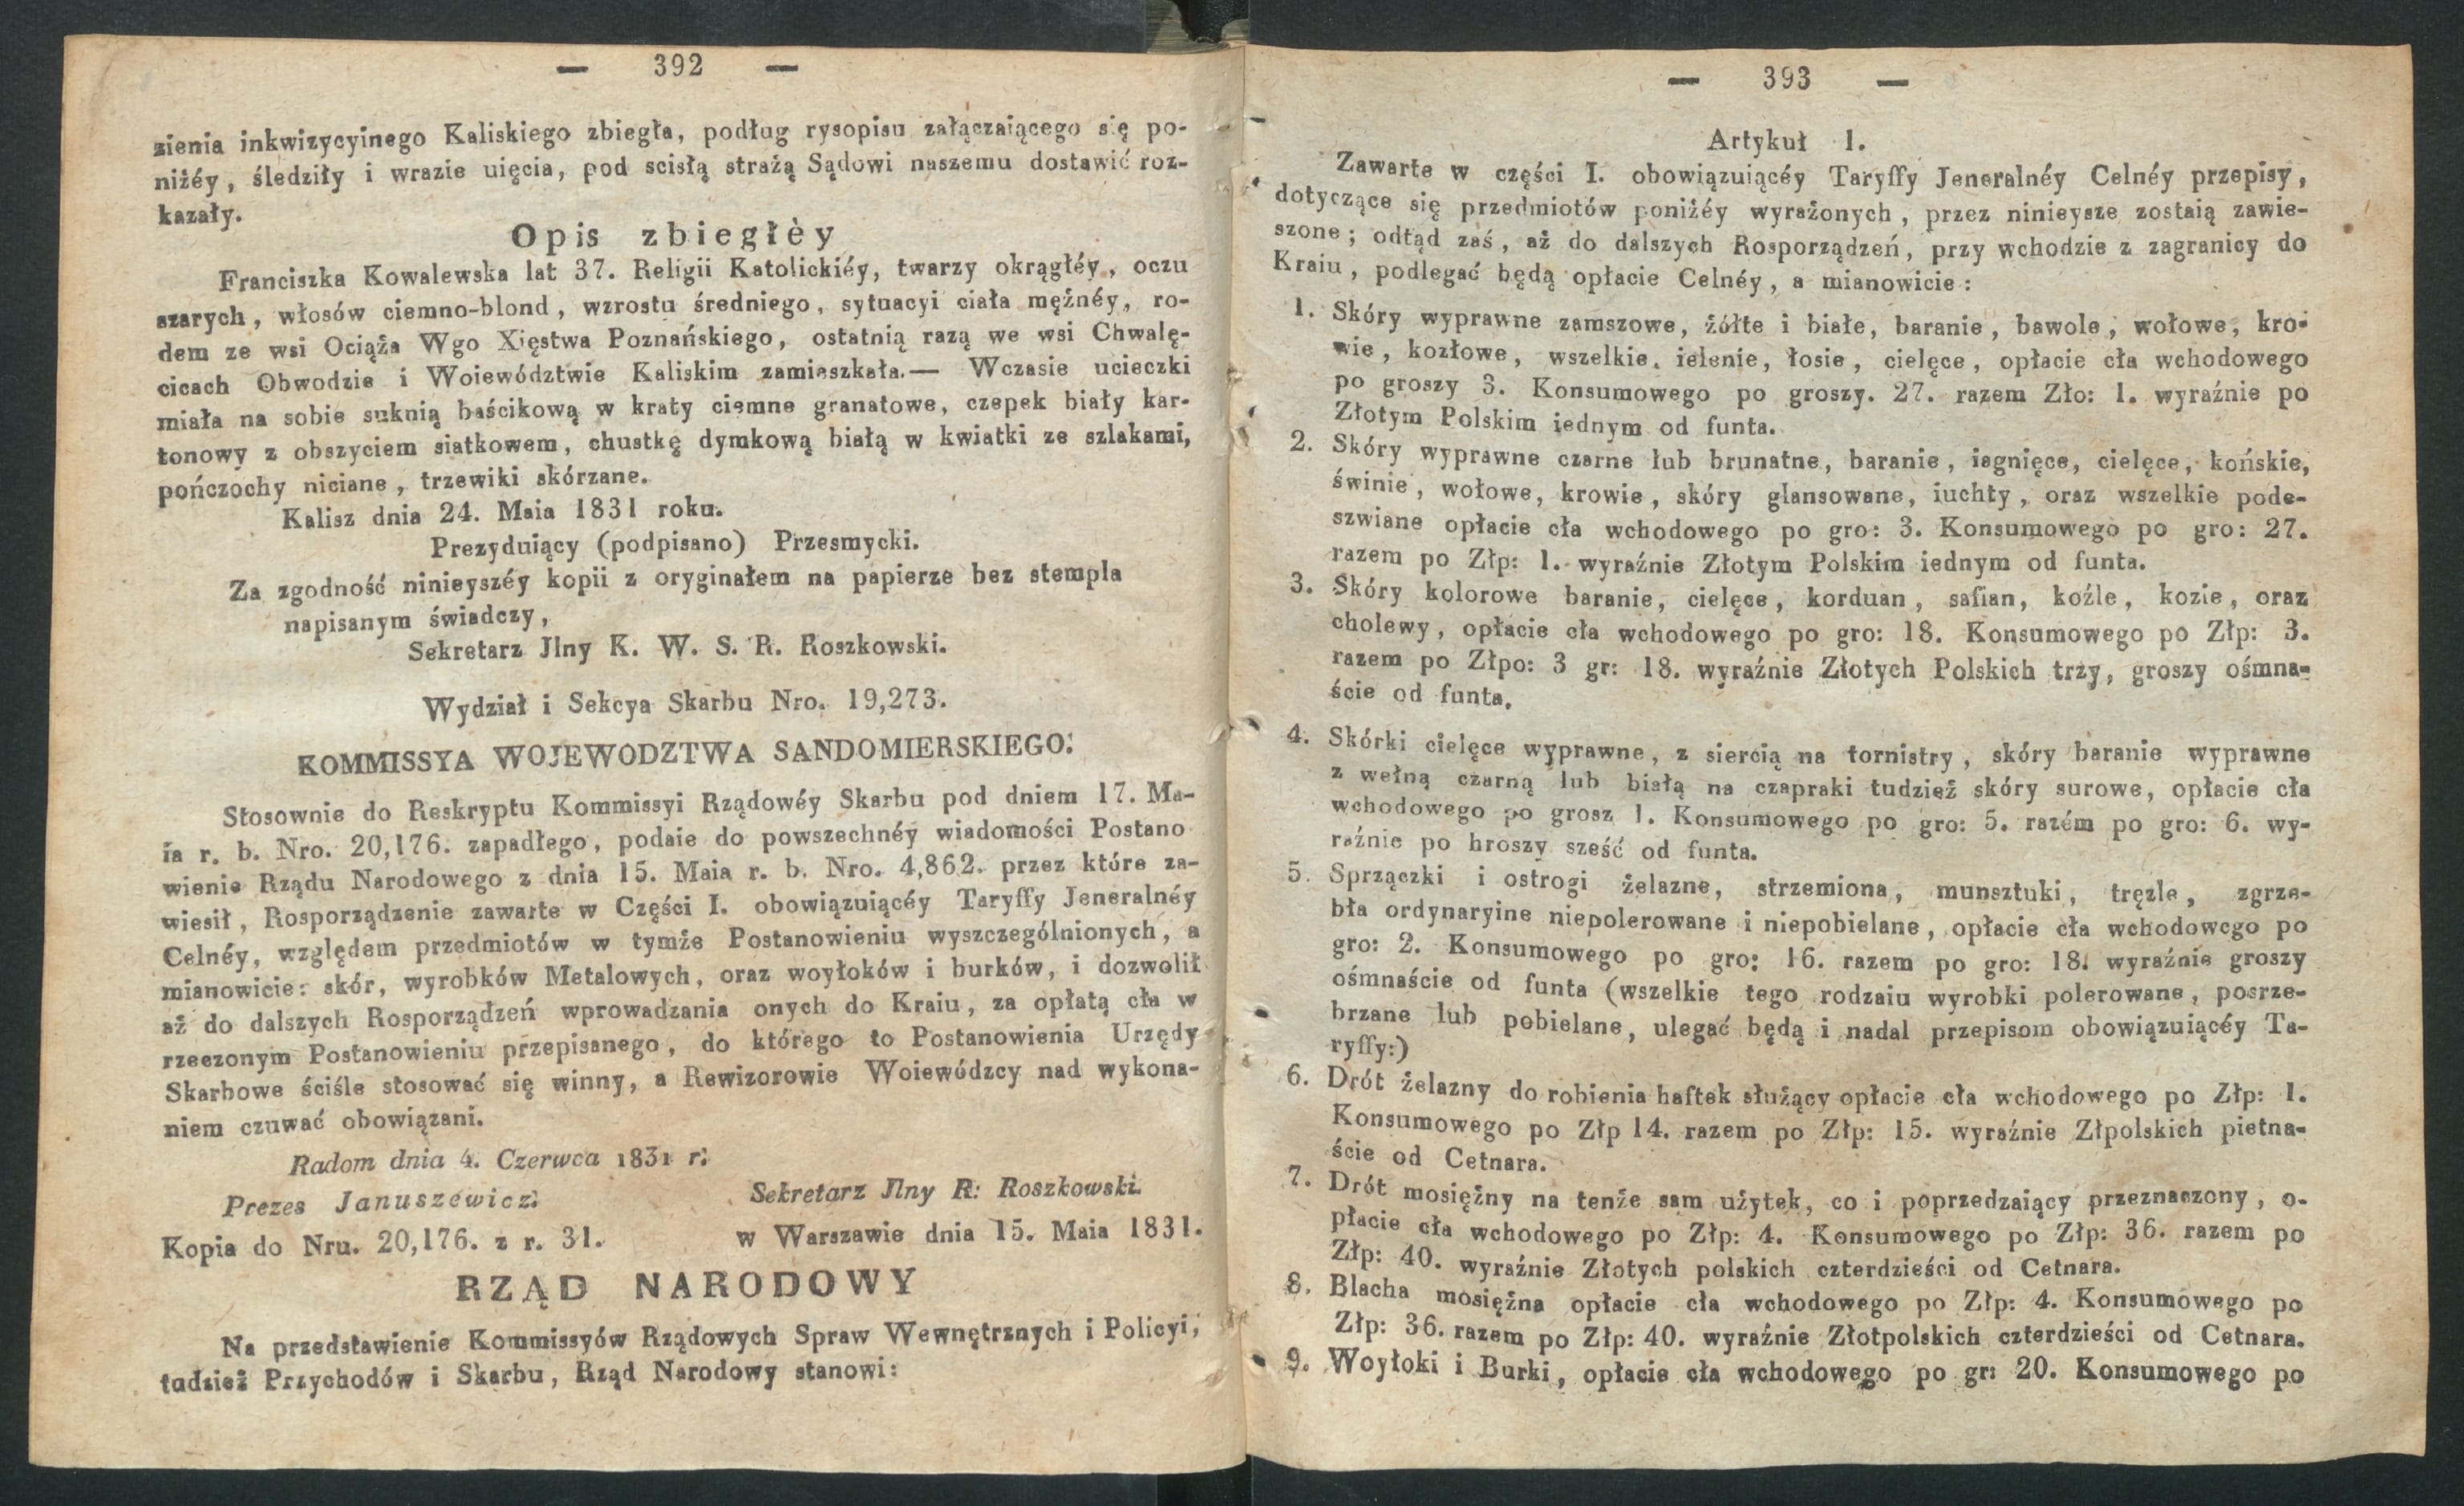 — 392 —
zienia inkwizycyinego Kaliskiego zbiegła, podług rysopisu załączaiącego się po-
niżéy, śledziły i wrazie uięcia, pod scisłą strażą Sądowi naszemu dostawić roz-
kazały.
Opis zbiegłèy
Franciszka Kowalewska lat 37. Religii Katolickiéy, twarzy okrągłéy, oczu
szarych, włosów ciemno-blond, wzrostu średniego, sytuacyi ciała mężnéy, ro-
dem ze wsi Ociąża Wgo Xięstwa Poznańskiego, ostatnią razą we wsi Chwalę-
cicach Obwodzie i Woiewództwie Kaliskim zamieszkała.— Wczasie ucieczki
miała na sobie suknią baścikową w kraty ciemne granatowe, czepek biały kar-
tonowy z obszyciem siatkowem, chustkę dymkową białą w kwiatki ze szlakami,
pończochy niciane, trzewiki skórzane.
Kalisz dnia 24. Maia 1831 roku.
Prezyduiący (podpisano) Przesmycki.
Za zgodność ninieyszéy kopii z oryginałem na papierze bez stempla
napisanym świadczy,
Sekretarz Jlny K. W. S. R. Roszkowski.
Wydział i Sekcya Skarbu Nro. 19,273.
KOMMISSYA WOJEWODZTWA SANDOMIERSKIEGO.
Stosownie do Reskryptu Kommissyi Rządowéy Skarbu pod dniem 17. Ma-
ia r. b. Nro. 20,176. zapadłego, podaie do powszechnéy wiadomości Postano
wienie Rządu Narodowego z dnia 15. Maia r. b. Nro. 4,862. przez które za-
wiesił, Rosporządzenie zawarte w Części I. obowiązuiącéy Taryffy Jeneralnéy
Celnéy, względem przedmiotów w tymże Postanowieniu wyszczególnionych, a
mianowicie: skór, wyrobków Metalowych, oraz woyłoków i burków, i dozwolił
aż do dalszych Rosporządzeń wprowadzania onych do Kraiu, za opłatą cła w
rzeczonym Postanowieniu przepisanego, do którego to Postanowienia Urzędy
Skarbowe ściśle stosować się winny, a Rewizorowie Woiewódzcy nad wykona-
niem czuwać obowiązani.
Radom dnia 4. Czerwca 1831 r.
Prezes Januszewicz. Sekretarz Jlny R: Roszkowski.
Kopia do Nru. 20,176. z r. 31. w Warszawie dnia 15. Maia 1831.
RZĄD NARODOWY
Na przedstawienie Kommissyów Rządowych Spraw Wewnętrznych i Policyi,
tudzież Przychodów i Skarbu, Rząd Narodowy stanowi:
— 393 —
Artykuł 1.
Zawarte w części I. obowiązuiącéy Taryffy Jeneralnéy Celnéy przepisy,
dotyczące się przedmiotów poniżéy wyrażonych, przez ninieysze zostaią zawie-
szone; odtąd zaś, aż do dalszych Rosporządzeń, przy wchodzie z zagranicy do
Kraiu, podlegać będą opłacie Celnéy, a mianowicie:
1. Skóry wyprawne zamszowe, żółte i białe, baranie, bawole, wołowe, kro-
wie, kozłowe, wszelkie, ielenie, łosie, cielęce, opłacie cła wchodowego
po groszy 3. Konsumowego po groszy. 27. razem Zło: 1. wyraźnie po
Złotym Polskim iednym od funta.
2. Skóry wyprawne czarne lub brunatne, baranie, iagnięce, cielęce, końskie,
świnie, wołowe, krowie, skóry glansowane, iuchty, oraz wszelkie pode-
szwiane opłacie cła wchodowego po gro: 3. Konsumowego po gro: 27.
razem po Złp: 1. wyraźnie Złotym Polskim iednym od funta.
3. Skóry kolorowe baranie, cielęce, korduan, safian, koźle, kozie, oraz
cholewy, opłacie cła wchodowego po gro: 18. Konsumowego po Złp: 3.
razem po Złpo: 3 gr: 18. wyraźnie Złotych Polskich trzy, groszy ośmna-
ście od funta.
4. Skórki cielęce wyprawne, z siercią na tornistry, skóry baranie wyprawne
z wełną czarną lub białą na czapraki tudzież skóry surowe, opłacie cła
wchodowego po grosz 1. Konsumowego po gro: 5. razém po gro: 6. wy-
raźnie po hroszy sześć od funta.
5. Sprzączki i ostrogi żelazne, strzemiona, munsztuki, tręzle, zgrze-
bła ordynaryine niepolerowane i niepobielane, opłacie cła wchodowego po
gro: 2. Konsumowego po gro: 16. razem po gro: 18. wyraźnie groszy
ośmnaście od funta (wszelkie tego rodzaiu wyrobki polerowane, posrze-
brzane lub pobielane, ulegać będą i nadal przepisom obowiązuiącéy Ta-
ryffy:)
6. Drót żelazny do robienia haftek służący opłacie cła wchodowego po Złp: 1.
Konsumowego po Złp 14. razem po Złp: 15. wyraźnie Złpolskich pietna-
ście od Cetnara.
7. Drót mosiężny na tenże sam użytek, co i poprzedzaiący przeznaczony, o-
płacie cła wchodowego po Złp: 4. Konsumowego po Złp: 36. razem po
Złp: 40. wyraźnie Złotych polskich czterdzieści od Cetnara.
8. Blacha mosiężna opłacie cła wchodowego po Złp: 4. Konsumowego po
Złp: 36. razem po Złp: 40. wyraźnie Złotpolskich czterdzieści od Cetnara.
9. Woyłoki i Burki, opłacie cła wchodowego po gr: 20. Konsumowego po